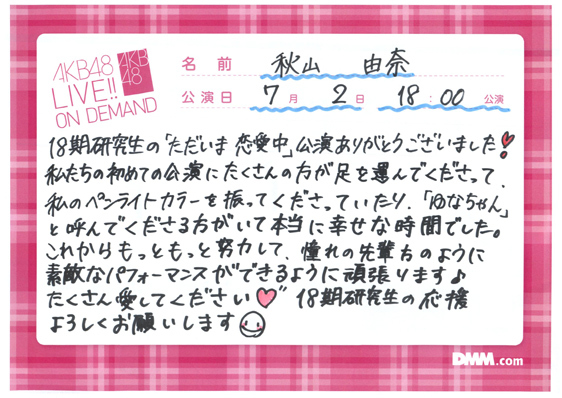 AKB48
LIVE!!
ON DEMAND
AKB
48
名前 秋山 由奈
公演日 7月 2日 18:00 公演
18期研究生の「ただいま 恋愛中」公演ありがとうございました!
私たちの初めての公演にたくさんの方が足を運んでくださって、
私のペンライトカラーを振ってくださっていたり、「ゆなちゃん」
と呼んでくださる方がいて本当に幸せな時間でした。
これからもっともっと努力して、憧れの先輩方のように
素敵なパフォーマンスができるように頑張ります♪
たくさん愛してください♥ 18期研究生の応援
よろしくお願いします
DMM.com